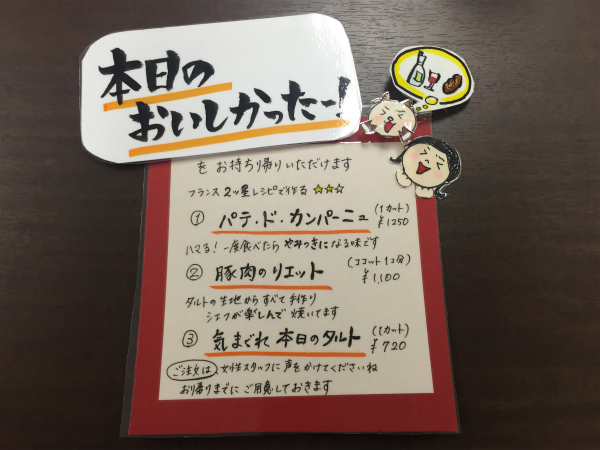 本日の
おいしかったー!
をお持ち帰りいただけます
フランス2ッ星レシピで作る ★★☆
① パテ・ド・カンパーニュ (1カット) ¥1250
ハマる！一度食べたらやみつきになる味です
② 豚肉のリエット (ココット1コ分) ¥1,100
タルトの生地からすべて手作り
シェフが楽しんで焼いてます
③ 気まぐれ本日のタルト (1カット) ¥720
ご注文は、女性スタッフに声をかけてくださいね
お帰りまでにご用意しておきます